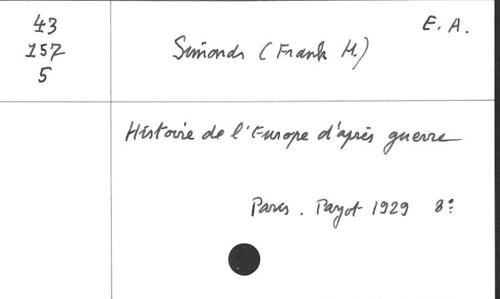 43
157
5
E. A.
Simonds (Frank H.)
Histoire de l'Europe d'après guerre
Paris. Payot 1929 8°